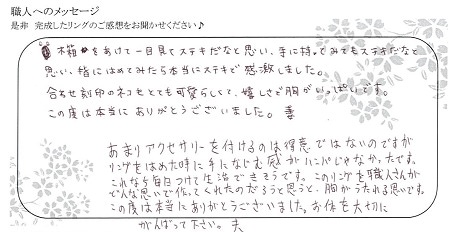 職人へのメッセージ
是非 完成したリングのご感想をお聞かせください♪
木箱をあけて一目見てステキだなと思い、手に持ってみてもステキだなと
思い、指にはめてみたら本当にステキで感激しました。
合わせ刻印のネコもとても可愛らしくて、嬉しさで胸がいっぱいです。
この度は本当にありがとうございました。 妻
あまりアクセサリーを付けるのは得意ではないのですが
リングをはめた時に手になじむ感がハンパじゃなかったです。
これなら毎日つけて生活できそうです。このリングを職人さんが
どんな思いで作ってくれたのだろうと思うと、胸がうたれる思いです。
この度は本当にありがとうございました。お体を大切に
がんばって下さい。 夫